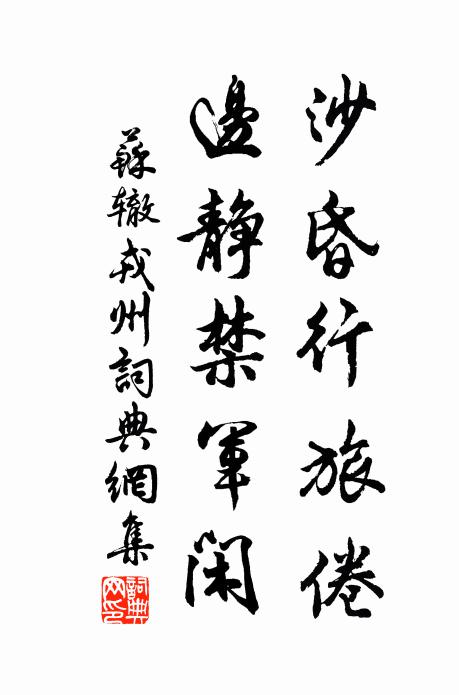 沙昏行旅倦
邊靜禁軍閑
蘇轍戎州詞典網集
詞典网印